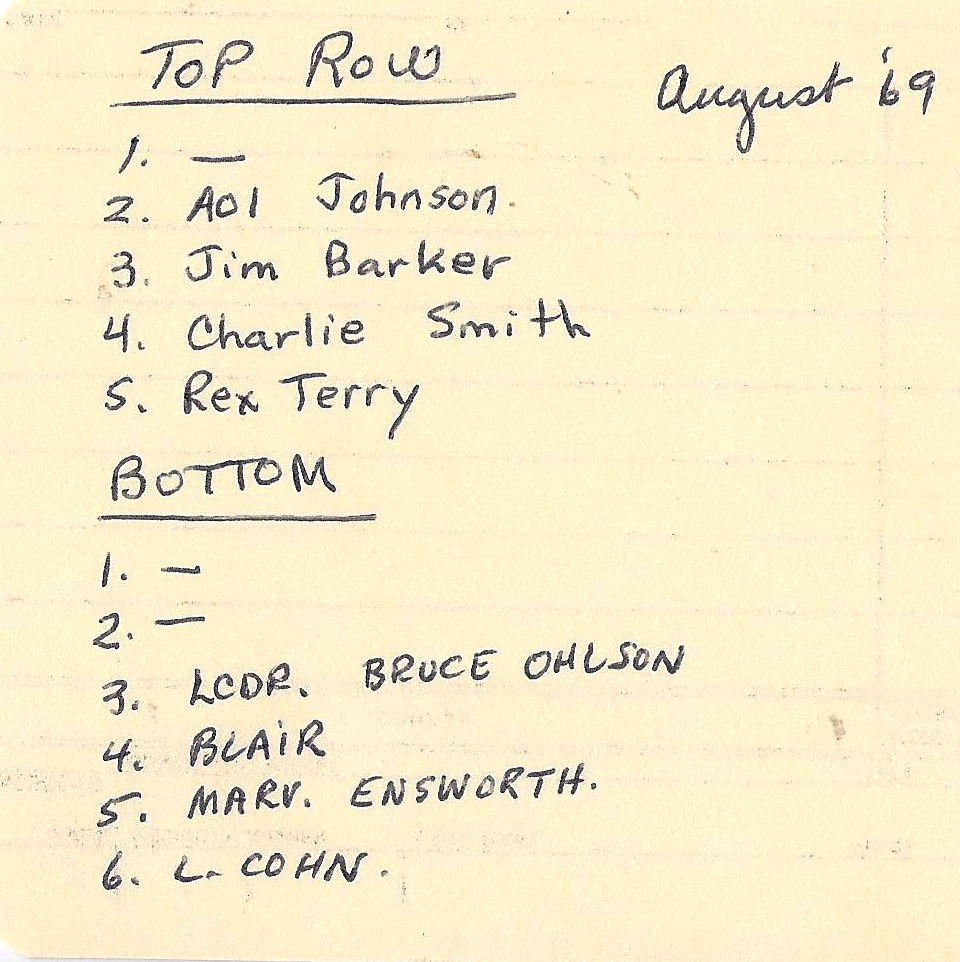 TOP ROW
August '69
1. —
2. AOl Johnson.
3. Jim Barker
4. Charlie Smith
5. Rex Terry
BOTTOM
1. —
2. —
3. LCDR. BRUCE OHLSON
4. BLAIR
5. MARV. ENSWORTH.
6. L. COHN.